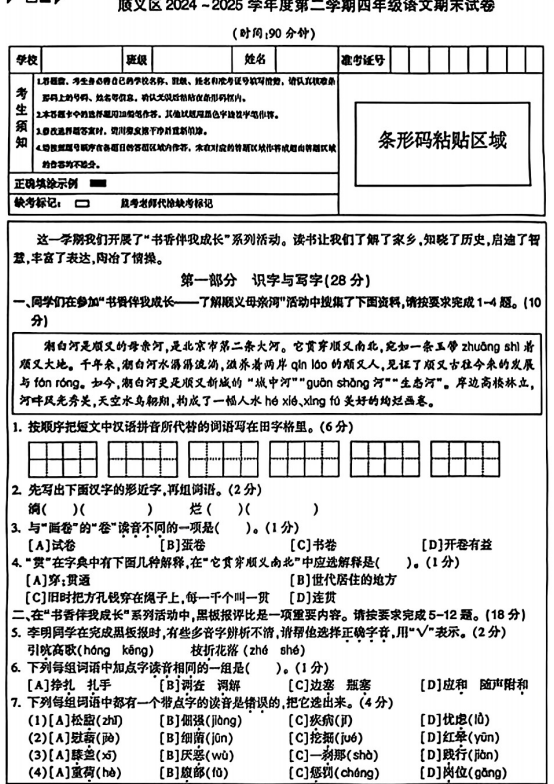 顺义区 2024～2025 学年度第二学期四年级语文期末试卷
(时间:90 分钟)
学校 班级 姓名 准考证号
考生须知
1.答题前，考生务必将自己的学校名称、班级、姓名和准考证号填写清楚，请认真核准条
形码上的号码、姓名等信息，确认无误后粘贴在条形码框内。
2.本答题卡中的选择题用2B铅笔作答，其他试题用黑色字迹签字笔作答。
3.修改选择题答案时，要用橡皮擦干净后重新填涂。
4.请按照题号顺序在各题目的答题区域内作答，未在对应的答题区域作答或超出答题区域
的作答均不给分。
条形码粘贴区域
正确填涂示例
缺考标记: 监考老师代涂缺考标记
这一学期我们开展了“书香伴我成长”系列活动。读书让我们了解了家乡,知晓了历史,启迪了智
慧,丰富了表达,陶冶了情操。
第一部分 识字与写字(28 分)
一、同学们在参加“书香伴我成长——了解顺义母亲河”活动中搜集了下面资料,请按要求完成1-4 题。(10
分)
潮白河是顺义的母亲河,是北京市第二条大河。它贯穿顺义南北,宛如一条玉带 zhuāng shì 着
顺义大地。千年来,潮白河水潺潺流淌,滋养着两岸 qín láo 的顺义人,见证了顺义古往今来的发展
与 fán róng。如今,潮白河更是顺义新城的“城中河”“guān shǎng 河”“生态河”。岸边高楼林立,
河畔风光秀美,天空水鸟翱翔,构成了一幅人水 hé xié、xìng fú 美好的绚烂画卷。
1. 按顺序把短文中汉语拼音所代替的词语写在田字格里。(6 分)
2. 先写出下面汉字的形近字,再组词语。(2 分)
淌( )( ) 烂( )( )
3. 与“画卷”的“卷”读音不同的一项是( )。(1 分)
[A]试卷 [B]蛋卷 [C]书卷 [D]开卷有益
4. “贯”在字典中有下面几种解释,在“它贯穿顺义南北”中应选解释是( )。(1 分)
[A]穿;贯通 [B]世代居住的地方
[C]旧时把方孔钱穿在绳子上,每一千个叫一贯 [D]连贯
二、在“书香伴我成长”系列活动中,黑板报评比是一项重要内容。请按要求完成5-12 题。(18 分)
5. 李明同学在完成黑板报时,有些多音字辨析不清,请帮他选择正确字音,用“√”表示。(2 分)
引吭高歌(háng kēng) 枝折花落 (zhé shé)
6. 下列每组词语中加点字读音相同的一组是( )。(1 分)
[A]挣扎 扎手 [B]调查 调解 [C]边塞 瓶塞 [D]应和 随声附和
7. 下列每组词语中都有一个带点字的读音是错误的,把它选出来。(4 分)
(1)[A]松脂(zhī) [B]倔强(jiàng) [C]疾病(jí) [D]忧虑(lǜ)
(2)[A]慰藉(jiè) [B]细菌(jūn) [C]挖掘(jué) [D]红晕(yūn)
(3)[A]膝盖(xī) [B]厌恶(wù) [C]一刹那(shà) [D]践行(jiàn)
(4)[A]重荷(hè) [B]腹部(fù) [C]惩罚(chéng) [D]岗位(gǎng)